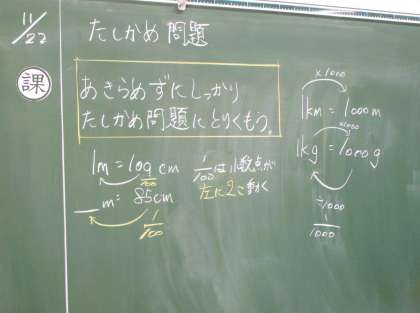 11/22
たしかめ問題
課
あきらめずにしっかり
たしかめ問題にとりくもう。
1m = 100 cm
1/100
__m = 85cm
1/100
1/100は小数点が
左に2こ動く
×1000
1km = 1000m
×1000
1kg = 1000g
÷1000
1/1000